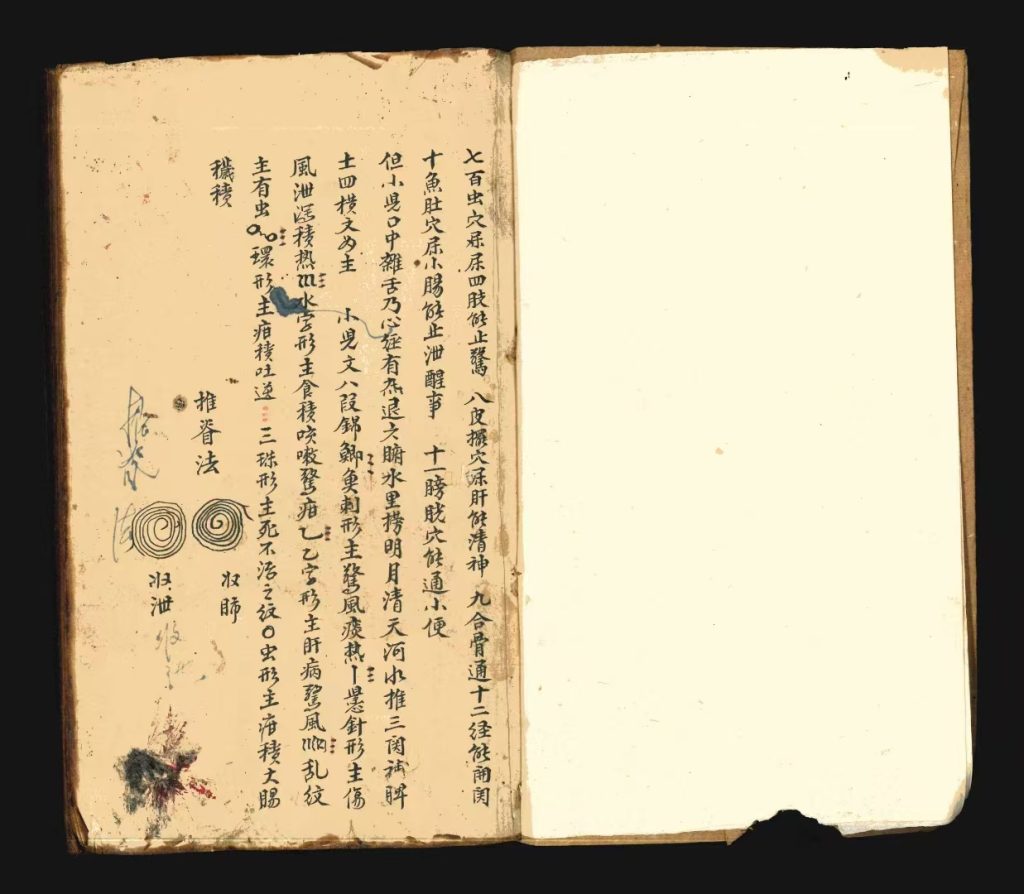 七百虫穴屎尿四肢能止驚　八皮摆穴屎肝能清神　九合骨通十二经能開関
十魚肚穴屎小腸能止泄醒事　十一膀胱穴能通小便
但小児口中雜舌乃心経有热退六腑水里捞明月清天河水推三関补脾
土四横文为主　小児文八段錦鲫魚刺形主驚風痰热丨懸針形主傷
風泄泻積热水字形主食積咳嗽驚疳乙乙字形主肝病驚風乱紋
主有虫環形主疳積吐逆三珠形主死不治之紋〇虫形主疳積大腸
穢積
推脊法
推脊
法
收肺
收泄
收